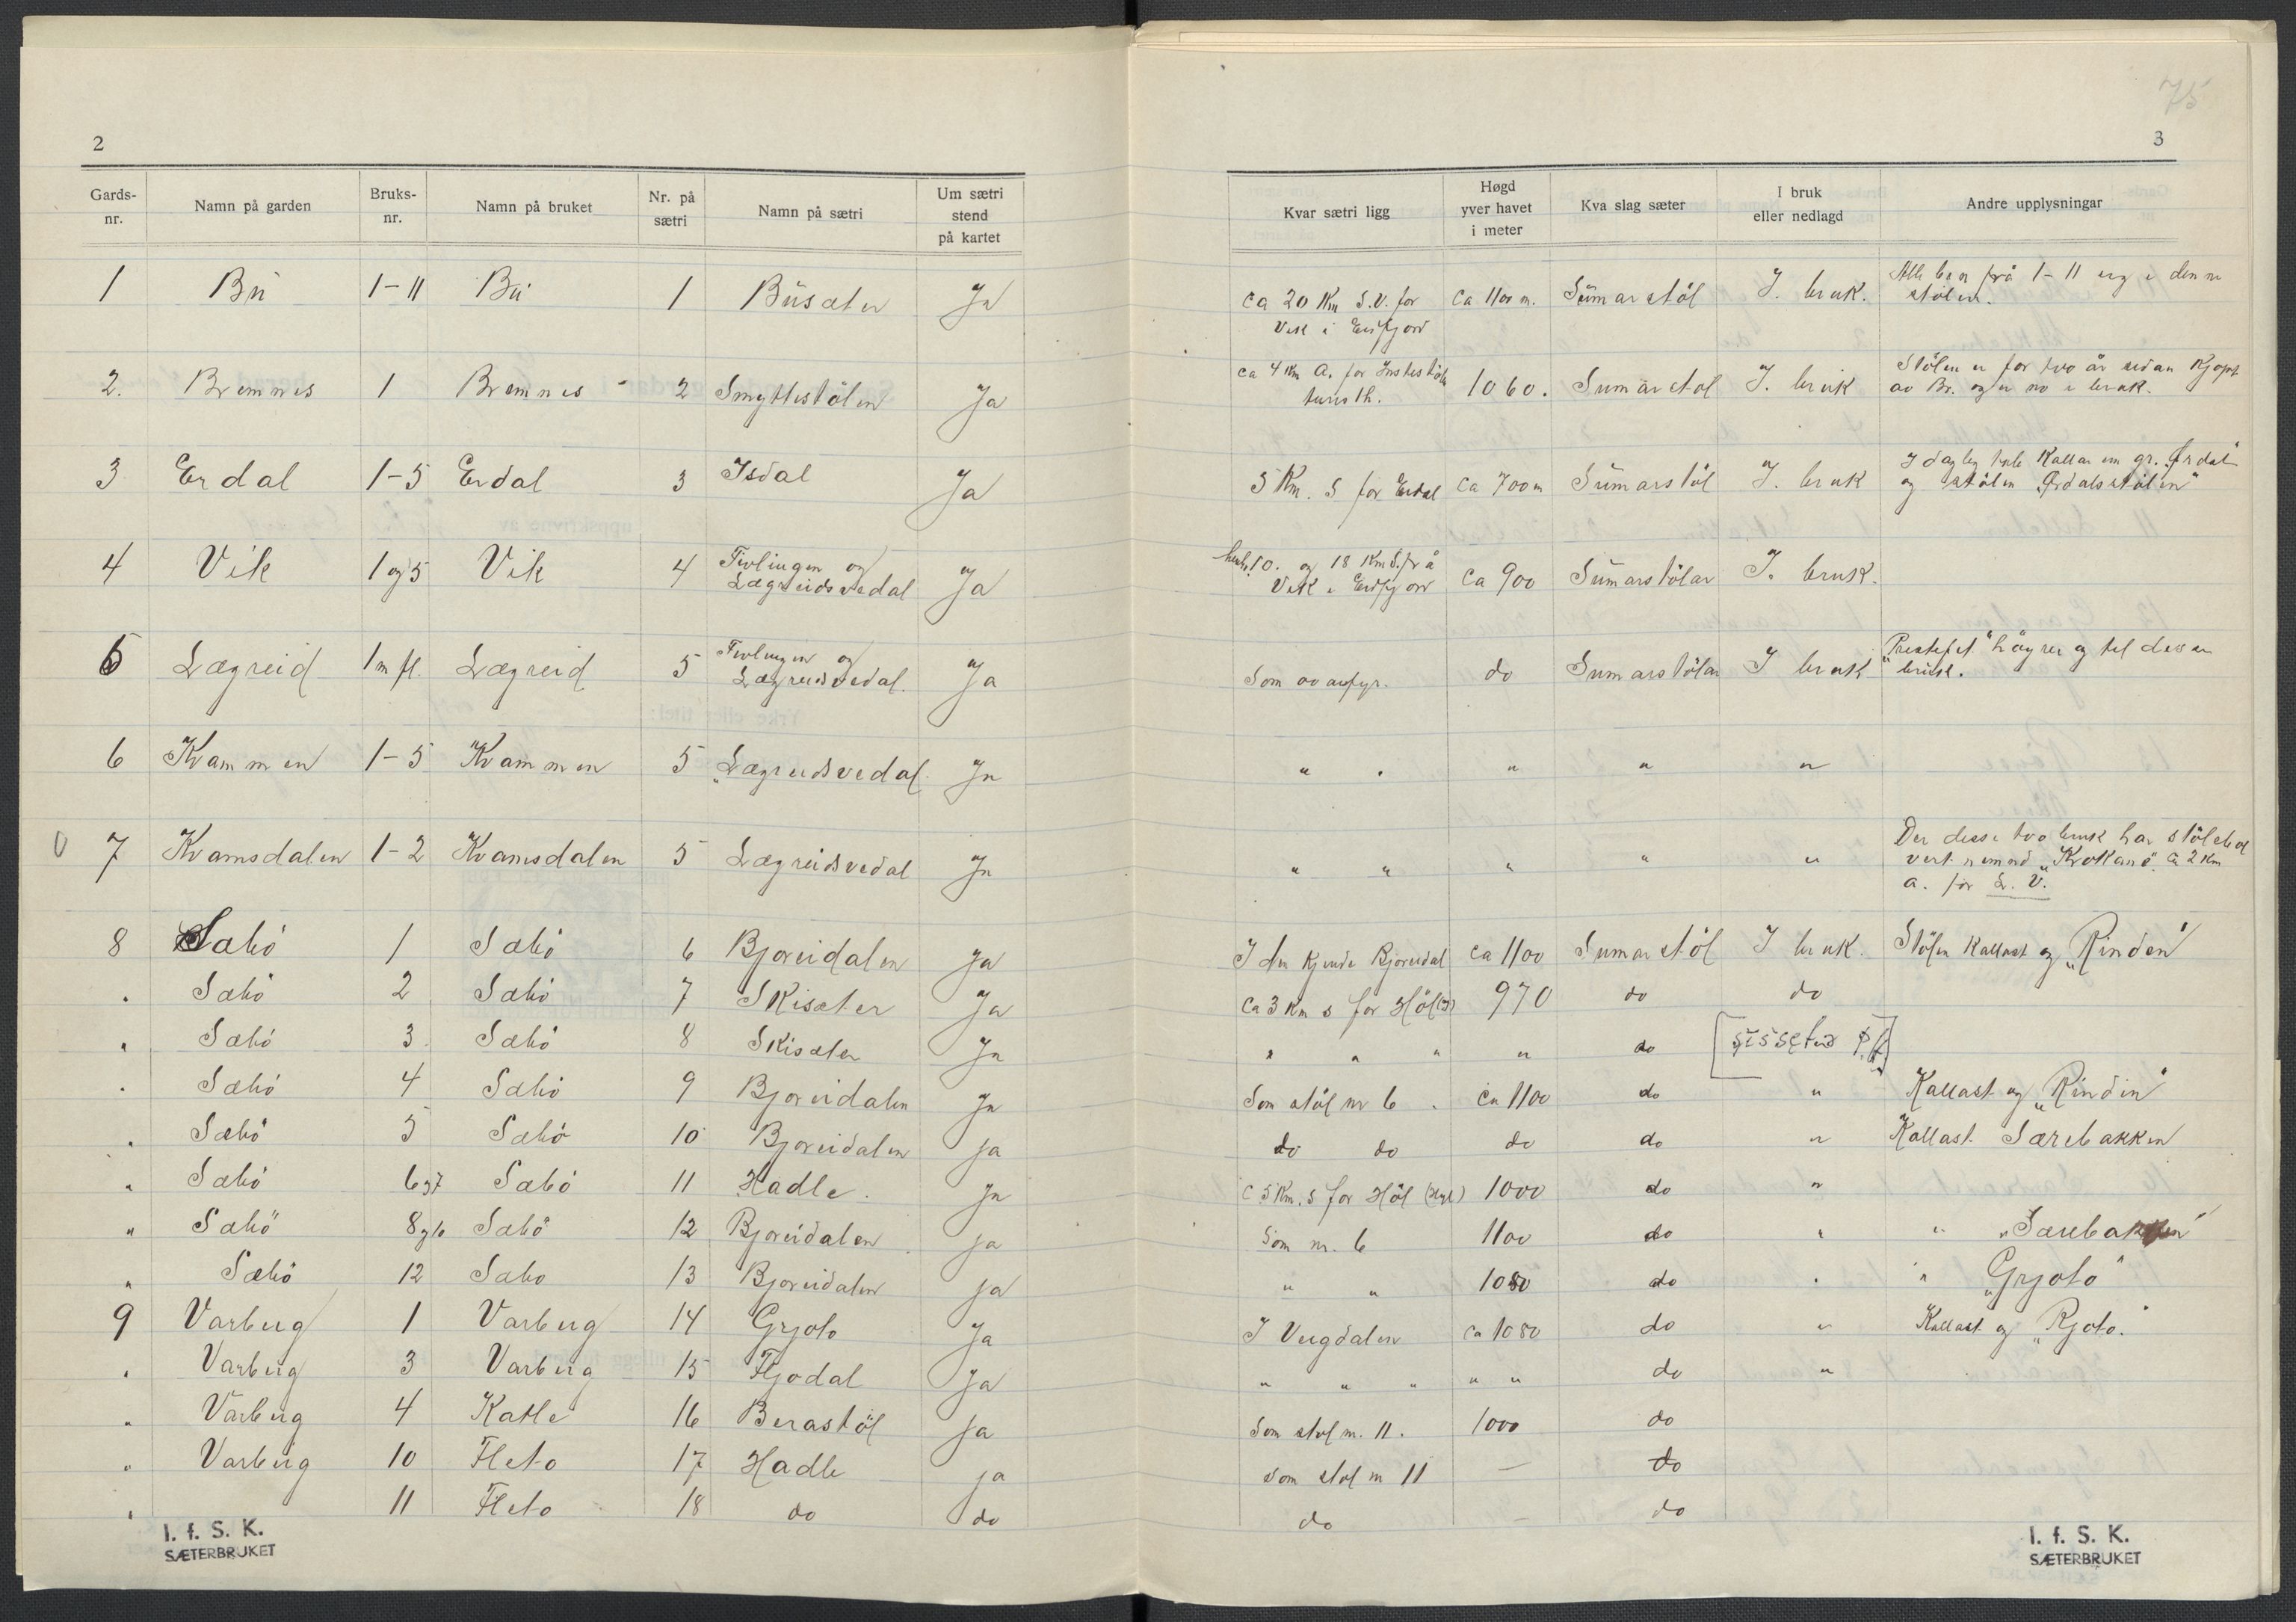 2
Gards-nr. Namn på garden Bruks-nr. Namn på bruket Nr. på sætri Namn på sætri Um sætri stend på kartet
1 Bu 1-11 Bu 1 Busæter Ja
2. Bremnes 1 Bremnes 2 Smyttestölen Ja
3 Erdal 1-5 Erdal 3 Isdal Ja
4 Vik 1 og 5 Vik 4 Fivlingen og Lægreidsvedal Ja
5 Lægreid 1 m fl. Lægreid 5 Fivlingen og Lægreidsvedal. Ja
6 Kvammen 1-5 Kvammen 5 Lægreidsvedal. Ja
7 Kvamsdalen 1-2 Kvamsdalen 5 Lægreidsvedal Ja
8 Sæbö 1 Sæbö 6 Bjoreidalen Ja
" Sæbö 2 Sæbö 7 Skisæter Ja
" Sæbö 3 Sæbö 8 Skisæter Ja
" Sæbö 4 Sæbö 9 Bjoreidalen Ja
" Sæbö 5 Sæbö 10 Bjoreidalen Ja
" Sæbö 6 og 7 Sæbö 11 Hadle. Ja
" Sæbö 8 og 10 Sæbö 12 Bjoreidalen Ja
" Sæbö 12 Sæbo 13 Bjoreidalen Ja
9 Varberg 1 Varberg 14 Grjoto Ja
" Varberg 3 Varberg 15 Fljodal Ja
" Varberg 4 Katle 16 Berastöl Ja
" Varberg 10 Fleto 17 Hadle ja
" 11 Fleto 18 do do
I. f. S. K.
SÆTERBRUKET
75
3
Kvar sætri ligg Høgd yver havet i meter Kva slag sæter I bruk eller nedlagd Andre upplysningar
ca 20 Km S.V. for Vik i Eidfjord ca 1100 m. Sumarstöl I. bruk. Alle br. n frå 1-11 eig i denne stölen.
ca 4 Km A. for turisth. 1060. Sumarstol I. bruk Stölen er for tvo år sidan Kjöpt av Br. og er no i bruk.
5 Km. S for Erdal ca 700 m Sumarstöl I. bruk I dagleg tale Kallar um gr. Ærdal og stölen "Ærdalsstölen"
10. og 18 Km S. frå Vik i Eidfjord ca 900 Sumarstölar I. bruk.
Som ovanfyr. do Sumarstölar I bruk "Prestefet" höyrer og til desse bruk.
" " " " "
" " " " " Der desse tvo bruk har stölsbol vert nemnd "Krokane" ca 2 Km a. for L. V.
I den Kjende Bjoreidal ca 1100 Sumarstöl I bruk. Stölen Kallast og "Rinden"
ca 3 Km s for Höl 970 do do
" " " " do
Som stöl nr 6. ca 1100 do " Kallast og "Rinden"
do do do do " Kallast Særebakken
c 5 Km. s for Höl 1000 do "
Som nr. 6 1100 do " " "Særebakken"
" " 1080 do " " "Grjoto"
I Veigdalen ca 1080 do " Kallast og "Rjoto."
" " " " " do "
Som stol nr. 11. 1000 do
Som stol nr 11 — do
do — do
I. f. S. K.
SÆTERBRUKET